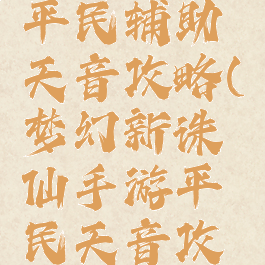 平民辅助
天音攻略(
梦幻新诛
仙手游平
民天音攻